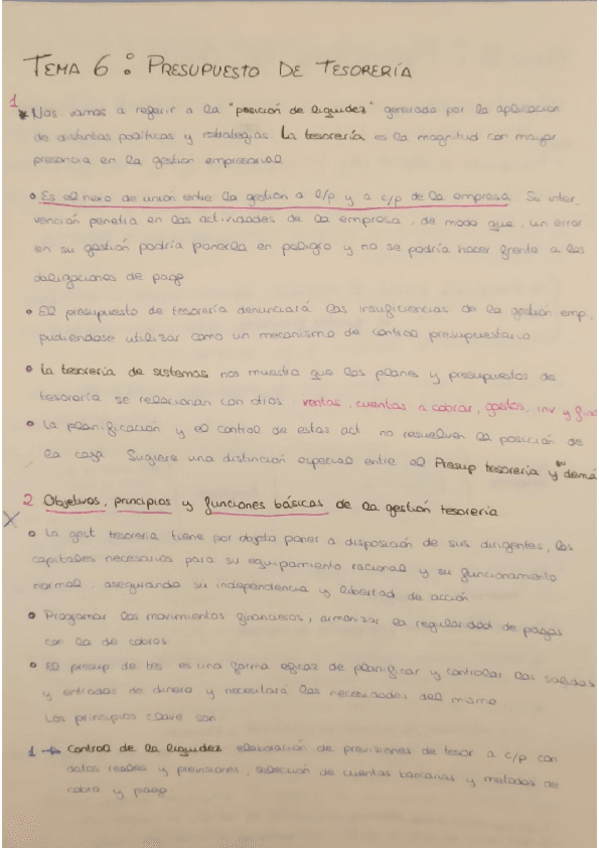 TEMA 6: PRESUPUESTO DE TESORERÍA
1
* Nos vamos a referir a la "posición de liquidez" generada por la aplicación
de distintas políticas y estrategias. La tesorería es la magnitud con mayor
presencia en la gestión empresarial
• Es el nexo de unión entre la gestión a l/p y a c/p de la empresa. Su inter
vención penetra en las actividades de la empresa, de modo que, un error
en su gestión podría ponerla en peligro y no se podría hacer frente a las
obligaciones de pago
• El presupuesto de tesorería denunciará las insuficiencias de la gestión emp.
pudiéndose utilizar como un mecanismo de control presupuestario
• La tesorería de sistemas nos muestra que los planes y presupuestos de
tesorería se relacionan con otros ventas, cuentas a cobrar, gastos, inv y
• La planificación y el control de estas act no resuelven la posición de
la caja Sugiere una distinción especial entre el Presup tesorería y demá
2 Objetivos, principios y funciones básicas de la gestión tesorería
X
• La gest tesorería tiene por objeto poner a disposición de sus dirigentes, los
capitales necesarios para su equipamiento racional y su funcionamiento
normal, asegurando su independencia y libertad de acción
• Programar los movimientos financieros, armonizar la regularidad de pagos
con la de cobros
• El presup de tes es una forma eficaz de planificar y controlar las salidas
y entradas de dinero y necesitará las necesidades del mismo
Los principios clave son
1 → Control de la liquidez elaboración de previsiones de tesor a c/p con
datos reales y previsiones, selección de cuentas bancarias y metodos de
cobro y pago